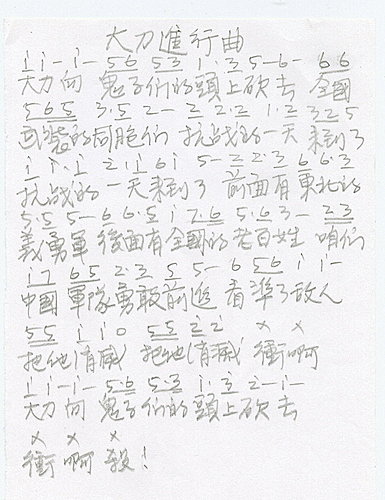 大刀進行曲
i i - i - 5 6 5 3 i · 3 5 - 6 - 6 6
大刀向 鬼子們的頭上砍去 全國
5 6 5 3 · 5 2 - 2 2 · 2 1 · 2 3 2 5
武裝的同胞们 抗战的一天 来到了
i i · i 2 · i 6 i 5 - 2 2 · 3 6 6 · 3
抗战的 一天来到了 前面有東北的
5 · 5 5 - 6 6 · 5 i 7 · 6 5 · 6 3 - 2 3
義勇軍 後面有全國的老百姓 咱们
i 7 6 5 2 · 3 5 5 - 6 5 6 i i -
中國軍隊勇敢前進 看準了敌人
5 5 i i 0 5 5 2 2 x x
把他消滅 把他消滅 衝啊
i i - i - 5 · 6 5 · 3 i · 3 2 - i -
大刀向 鬼子们的頭上砍去
x x x
衝啊 殺!